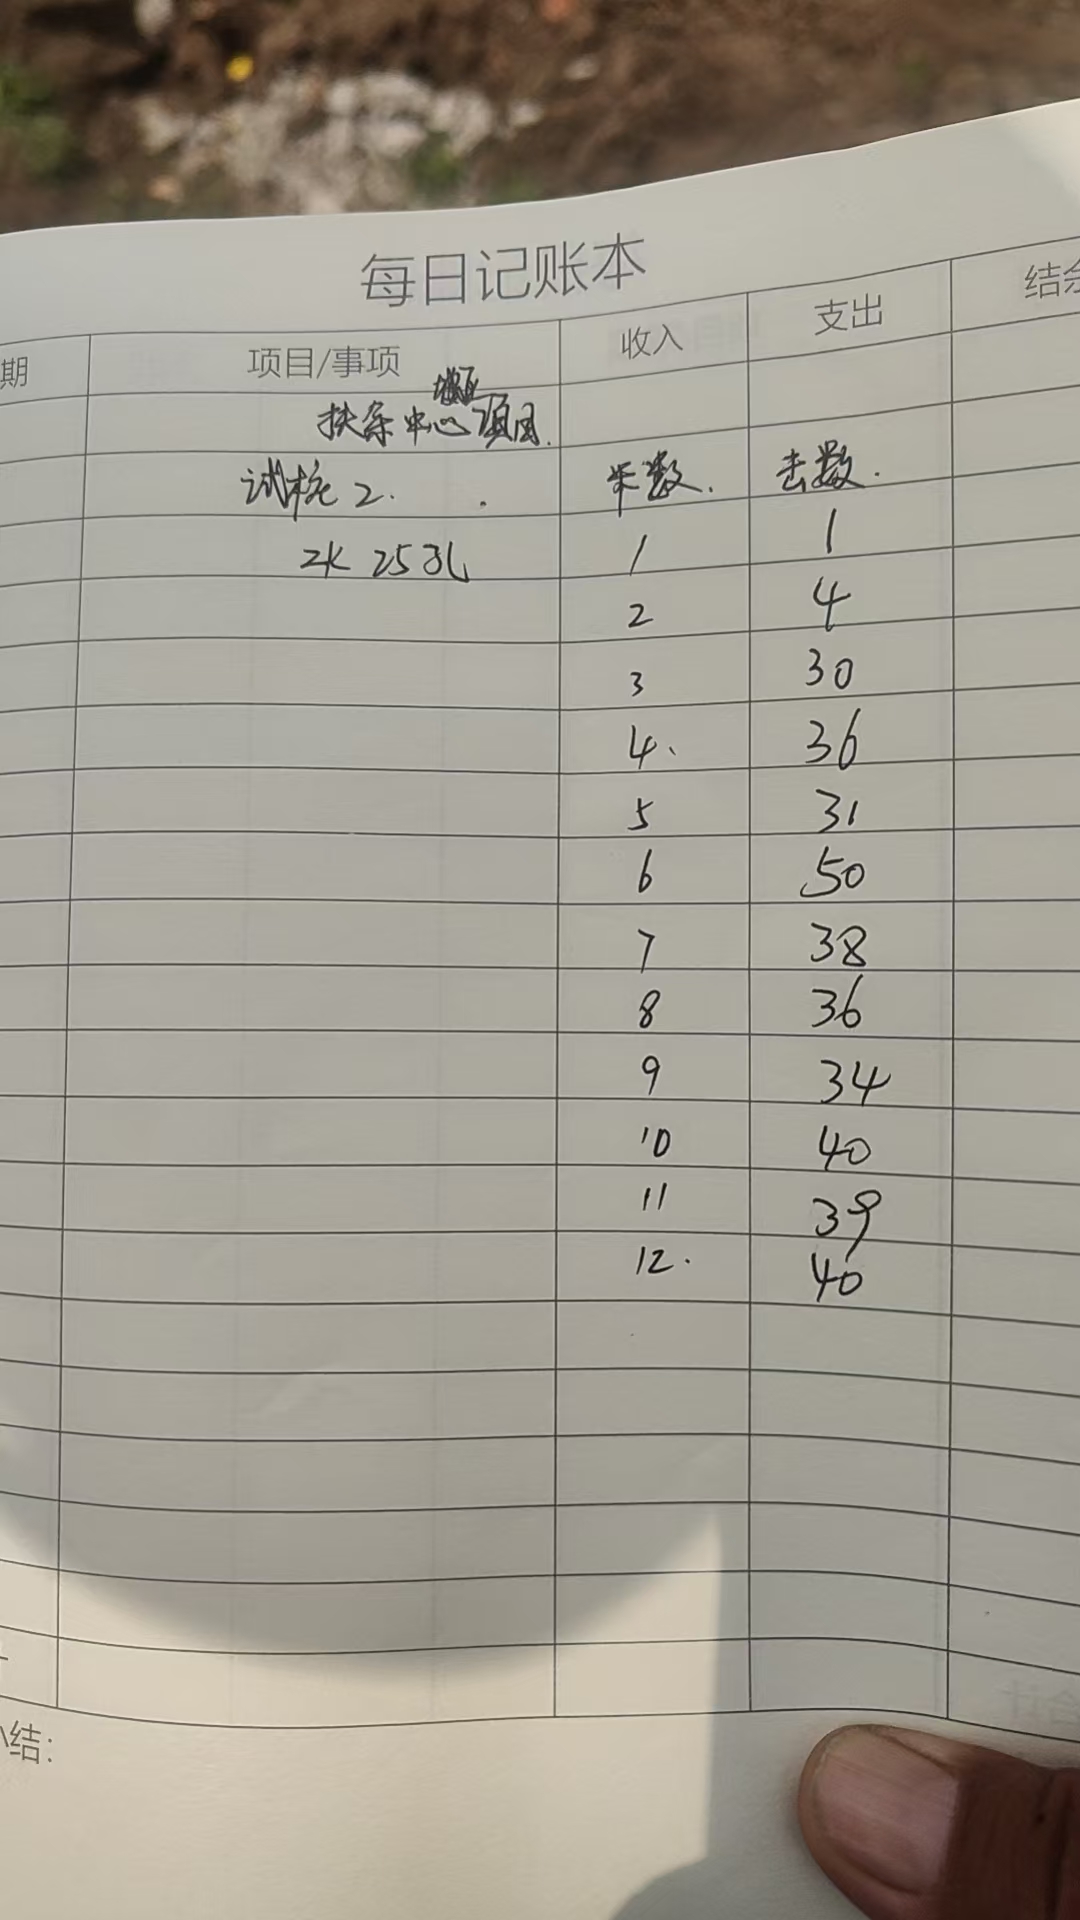 每日记账本
期 项目/事项 收入 支出 结余
中心 项目
试桩2. 米数. 击数.
ZK 25孔 1 1
2 4
3 30
4 36
5 31
6 50
7 38
8 36
9 34
10 40
11 39
12 40
小结: